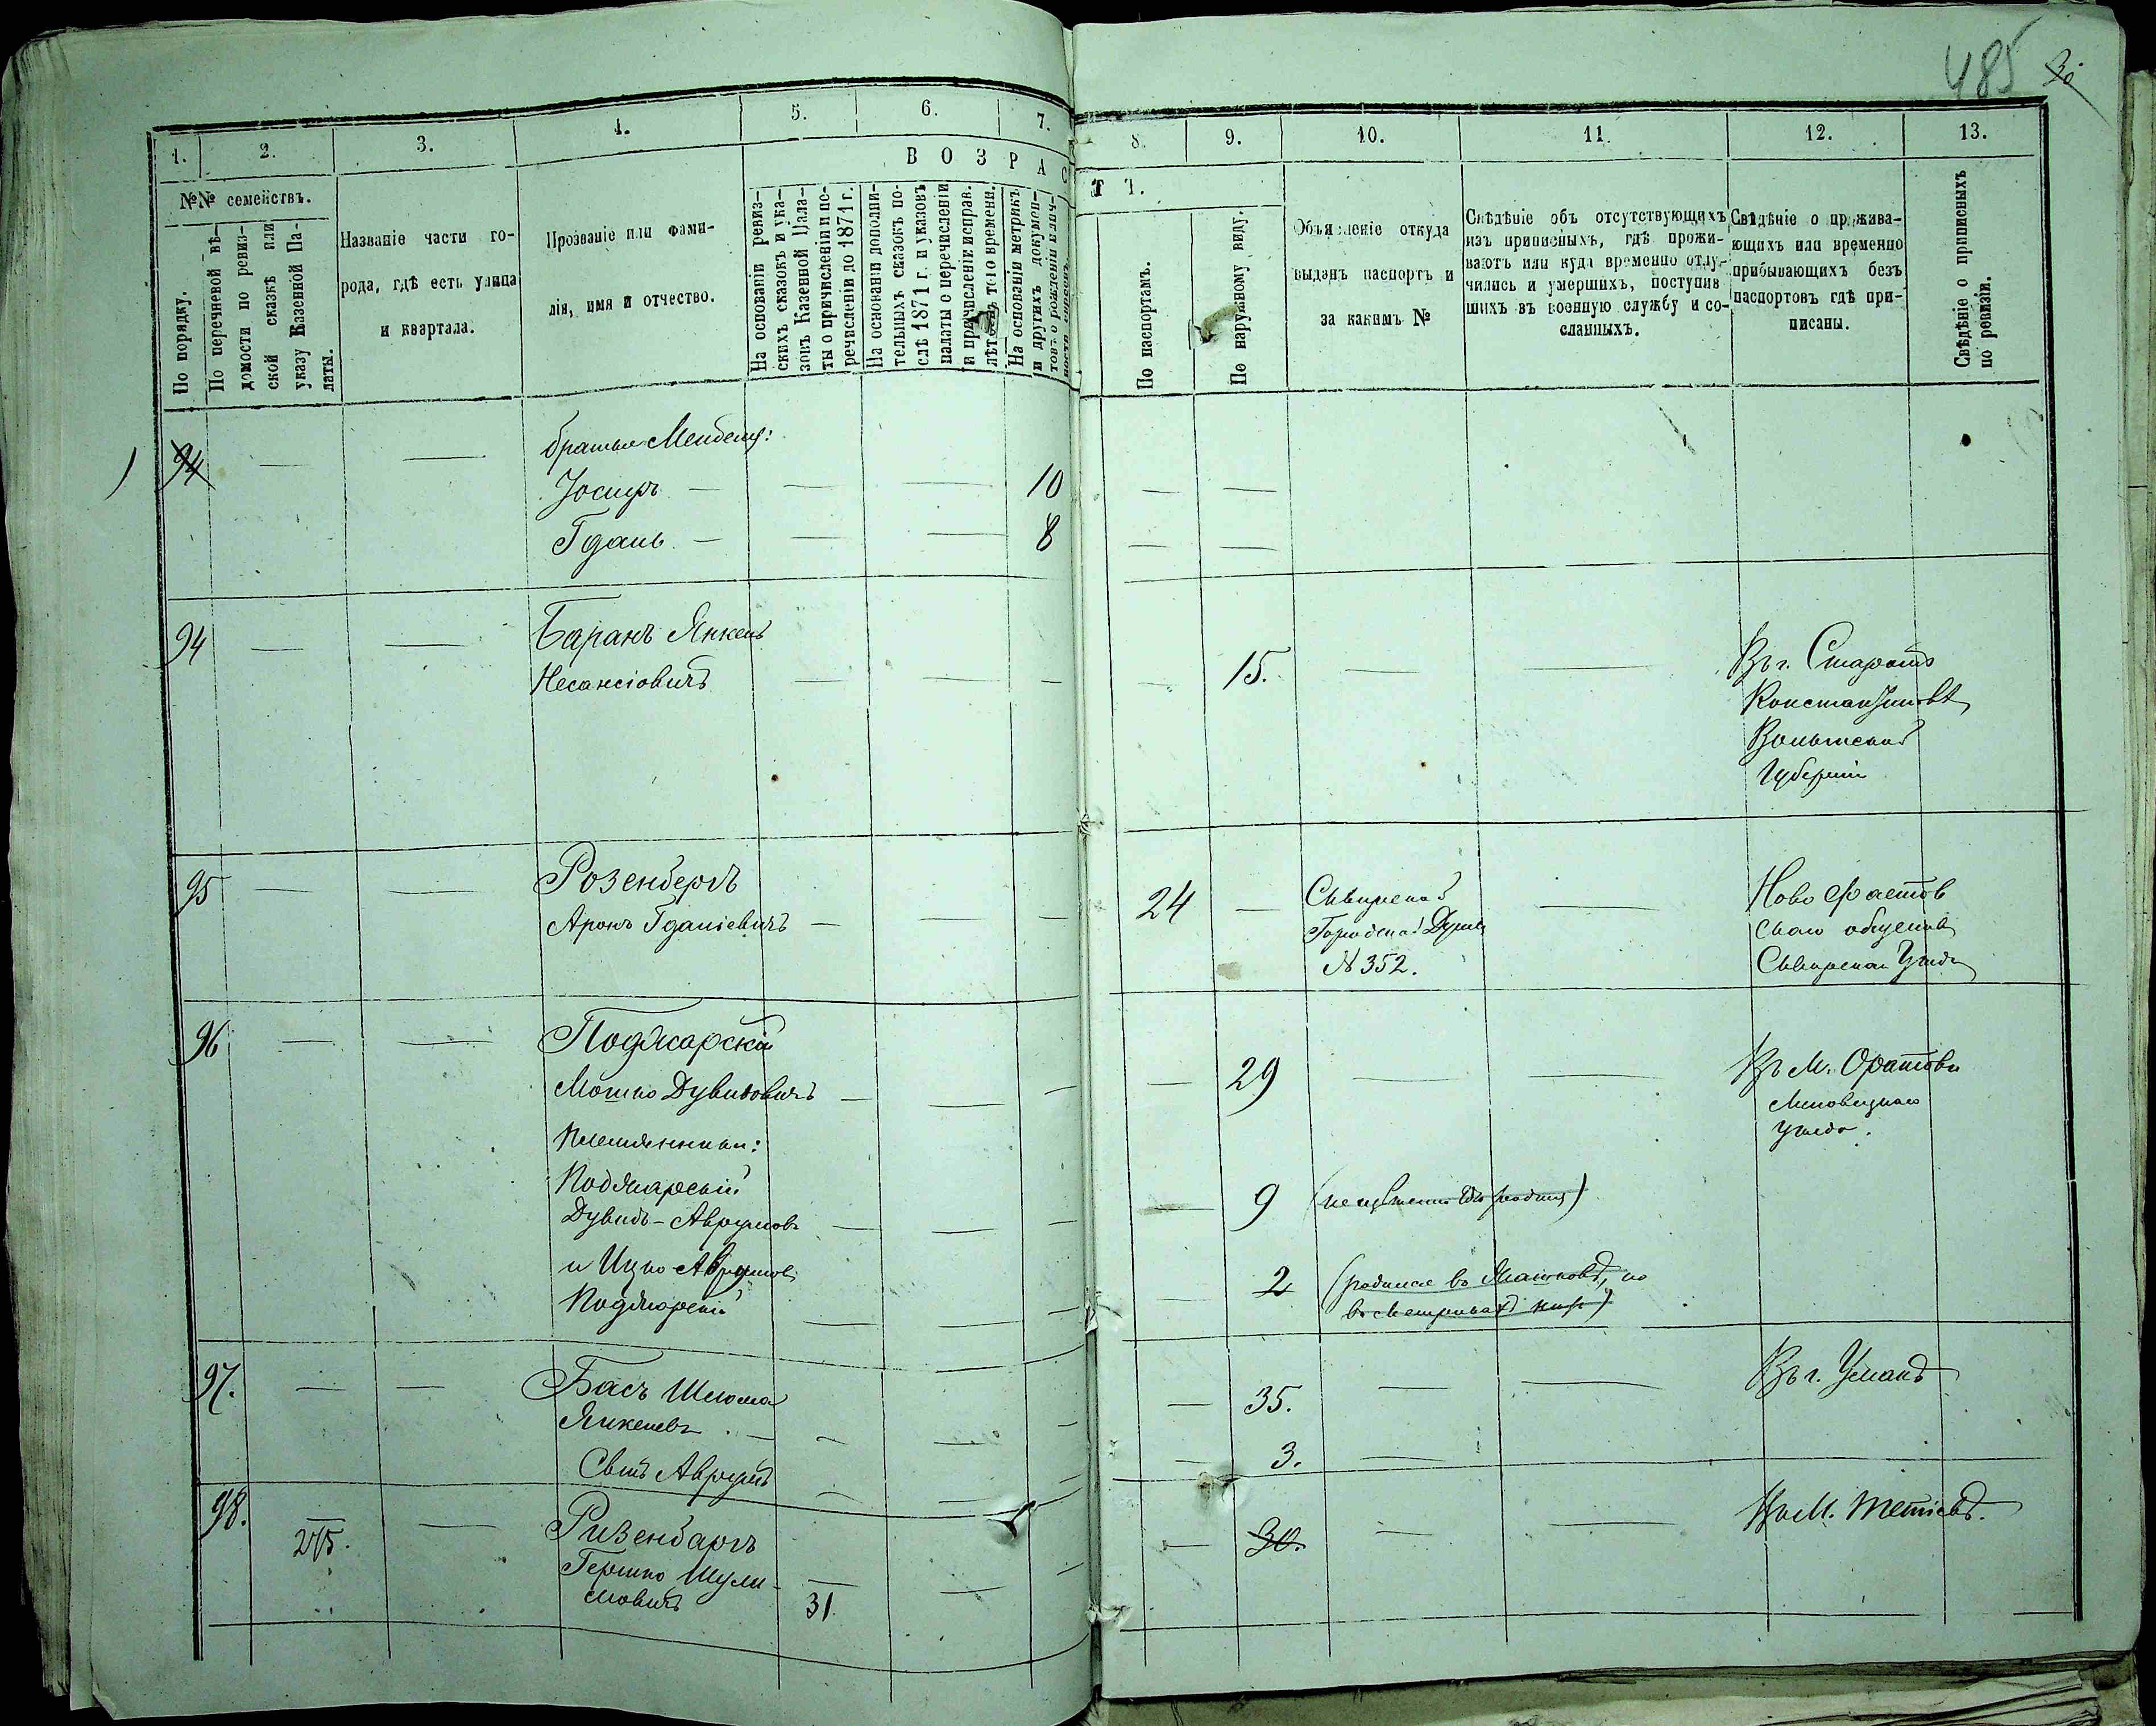 485 30
1. 2. 3. 4. 5. 6. 7. 8. 9. 10. 11. 12. 13.
№№ семействъ.
По порядку.
По перечневой вѣ-
домости по ревиз-
ской сказкѣ или
указу Казенной Па-
латы.
Названіе части го-
рода, гдѣ есть улица
и квартала.
Прозваніе или фами-
лія, имя и отчество.
ВОЗРАСТ Т.
На основаніи ревиз-
скихъ сказокъ и ука-
зовъ Казенной Пала-
ты о причисленіи и пе-
речисленіи до 1871 г.
На основаніи дополни-
тельныхъ сказокъ по-
слѣ 1871 г. и указовъ
палаты о перечисленіи
и причисленіи исправ.
На основаніи метрикъ
и другихъ докумен-
товъ о рожденіи и лич-
По паспортамъ.
По наружному виду.
Объясненіе откуда
выданъ паспортъ и
за какимъ №
Свѣдѣніе объ отсутствующихъ
изъ приписныхъ, гдѣ прожи-
ваютъ или куда временно отлу-
чились и умершихъ, поступив
шихъ въ военную службу и со-
сланныхъ.
Свѣдѣніе о прожива-
ющихъ или временно
прибывающихъ безъ
паспортовъ гдѣ при-
писаны.
Свѣдѣніе о приписныхъ
по ревизіи.
94 — — братья Менделя:
Іосифъ — — — 10 — —
Гдаль — — — 8 — —
94 — — Баранъ Янкель
Несансіовичъ — — — — 15. — — Въ г. Старомъ
Константиновѣ
Волынской
Губерніи
95 — — Розенбергъ
Аронъ Гдаліевичъ — — — 24 — Сквирской
Городской Думы
№ 352.
— Ново Фастов
скаго общества
Сквирскаго Уѣзда
96 — — Поджарскій
Мошко Дувидовичъ — — — — 29 — — Въ М. Оратовѣ
Липовецкаго
уѣзда.
Племянники:
Поджарскій
Дувидъ-Аврумовъ — — — — 9 (неизвѣстно гдѣ родился)
и Ицко Аврумовъ
Поджарскій — — — — 2 (родился въ Махновѣ, но
въ метрикахъ
97. — — Басъ Шлюма
Янкелевъ — — — — — 35. — — Въ г. Уманѣ
Сынъ Аврумъ — — — 3. —
98. 275. — Ризенбаргъ
Гершко Шули-
мовичъ 31 — — — 30. — — Въ М. Тетіевѣ.